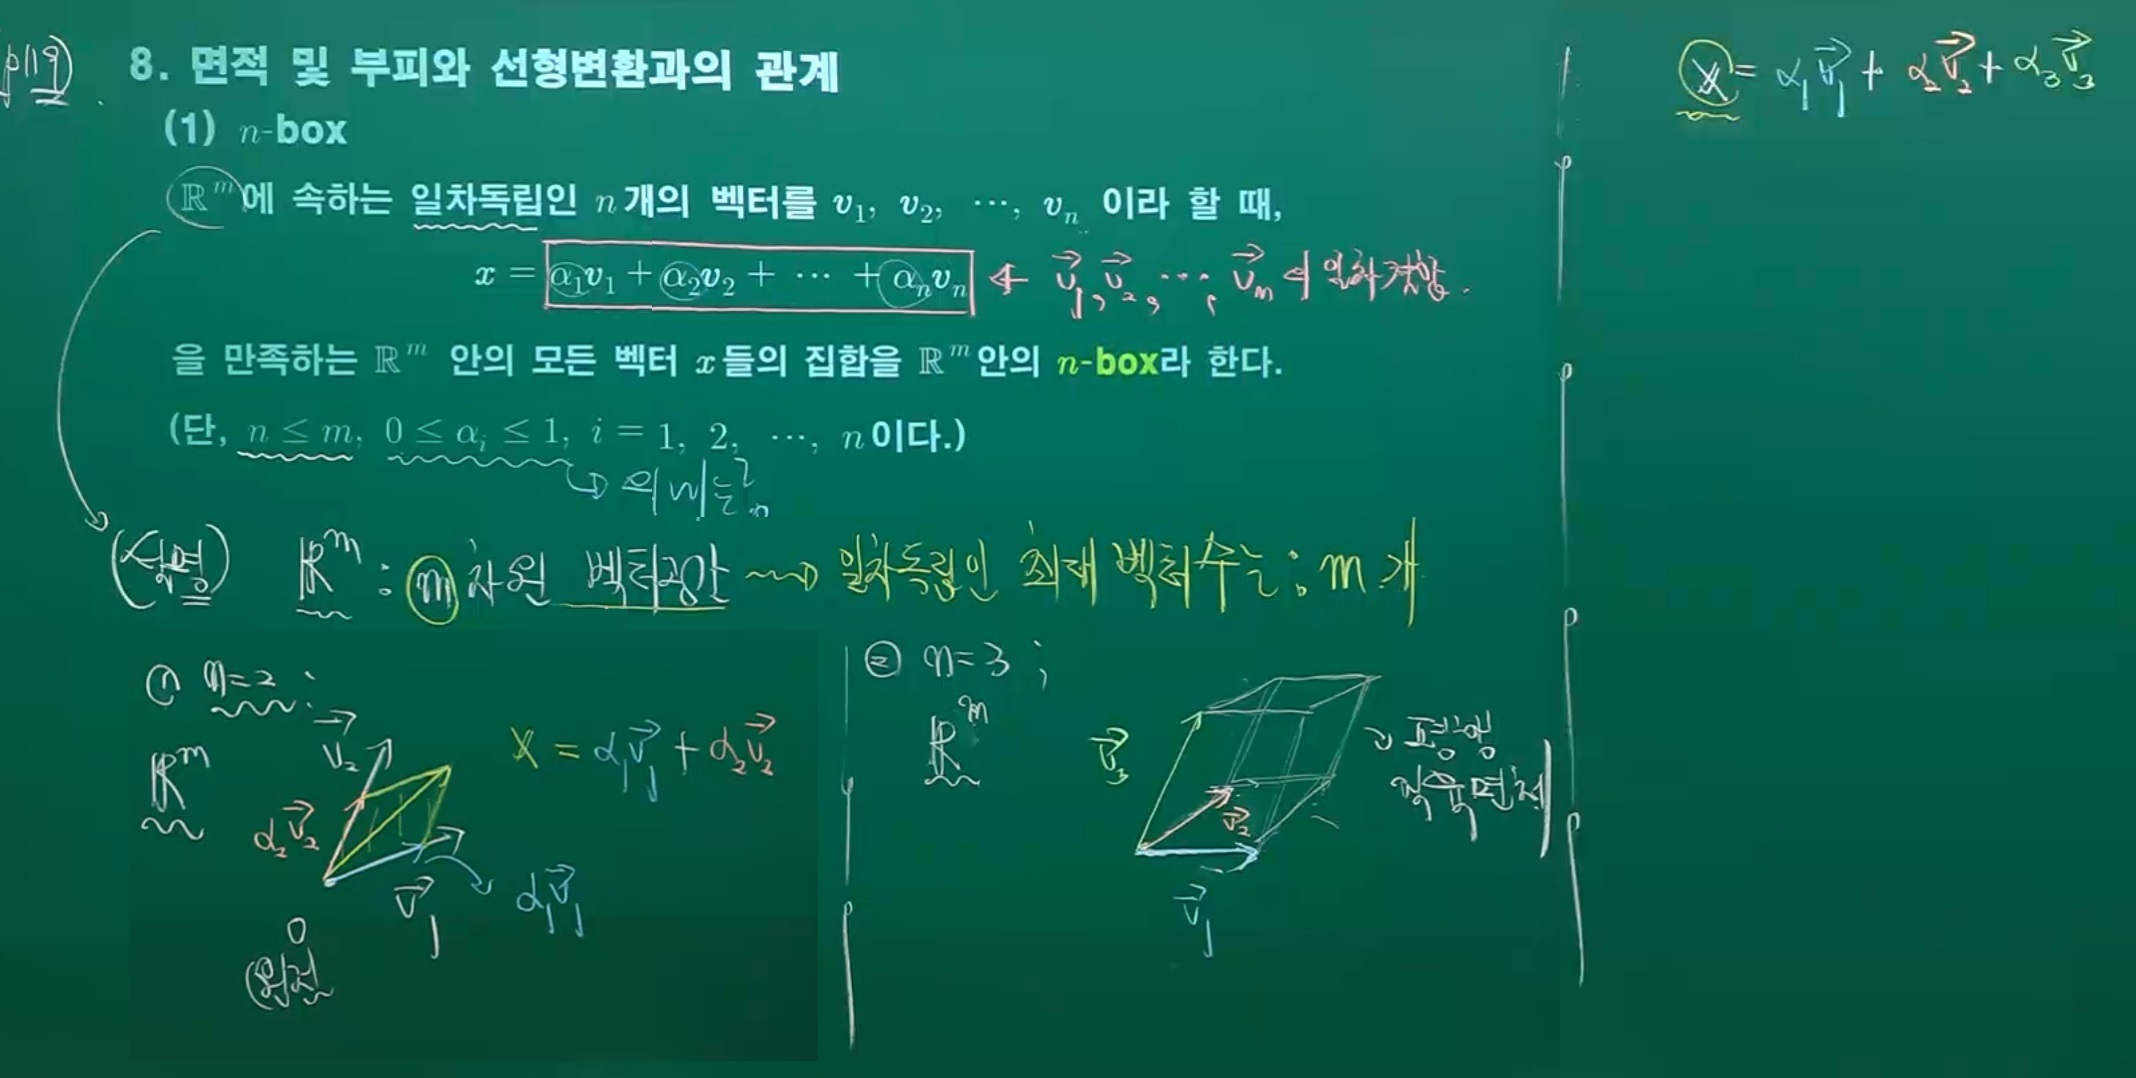 p119
8. 면적 및 부피와 선형변환과의 관계
(1) n-box
ℝᵐ에 속하는 일차독립인 n개의 벡터를 v₁, v₂, ⋯, vₙ 이라 할 때,
x = α₁v₁ + α₂v₂ + ⋯ + αₙvₙ ← v⃗₁, v⃗₂, ⋯, v⃗ₙ의 일차결합.
을 만족하는 ℝᵐ 안의 모든 벡터 x들의 집합을 ℝᵐ안의 n-box라 한다.
(단, n ≤ m, 0 ≤ αᵢ ≤ 1, i = 1, 2, ⋯, n이다.)
의미는?
(설명) ℝᵐ : m차원 벡터공간 ⇝ 일차독립인 최대 벡터수는 : m개
① n=2 :
ℝᵐ
v⃗₂
x = α₁v⃗₁ + α₂v⃗₂
α₂v⃗₂
v⃗₁
α₁v⃗₁
0
(원점
② n=3 ;
ℝᵐ
v⃗₃
v⃗₂
v⃗₁
평행
육면체
x = α₁v⃗₁ + α₂v⃗₂ + α₃v⃗₃